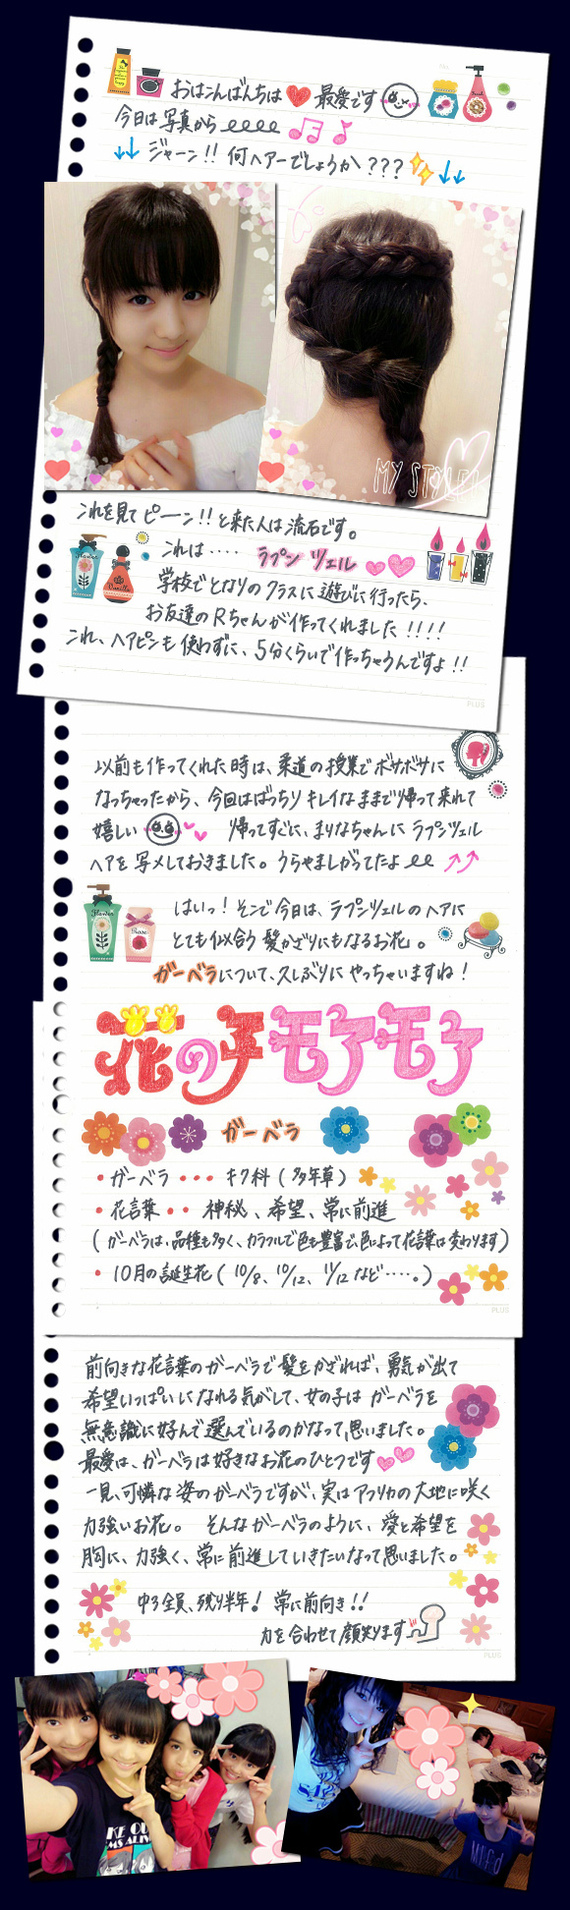 おはこんばんちは♥最愛です
今日は写真からeeee♫♪
↓↓ジャーン!!何ヘアーでしょうか???↓↓
MY STYLE!
これを見てピーン!!と来た人は流石です。
これは‥‥ラプンツェル
学校でとなりのクラスに遊びに行ったら、
お友達のRちゃんが作ってくれました!!!!
これ、ヘアピンも使わずに、5分くらいで作っちゃうんですよ!!
PLUS
以前も作ってくれた時は、柔道の授業でボサボサに
なっちゃったから、今回はばっちりキレイなままで帰って来れて
嬉しい 帰ってすぐに、まりなちゃんにラプンツェル
ヘアを写メしておきました。うらやましがってたよee
はいっ!そこで今日は、ラプンツェルのヘアに
とても似合う髪かざりにもなるお花。
ガーベラについて、久しぶりにやっちゃいますね!
花の子モアモア
ガーベラ
・ガーベラ・・・キク科(多年草)
・花言葉・・神秘、希望、常に前進
(ガーベラは、品種も多く、カラフルで色も豊富で、色によって花言葉は変わります)
・10月の誕生花(10/8、10/12、11/12など‥‥。)
PLUS
前向きな花言葉のガーベラで髪をかざれば、勇気が出て
希望いっぱいになれる気がして、女の子はガーベラを
無意識に好んで選んでいるのかなって思いました。
最愛は、ガーベラは好きなお花のひとつです
一見、可憐な姿のガーベラですが、実はアフリカの大地に咲く
力強いお花。そんなガーベラのように、愛と希望を
胸に、力強く、常に前進していきたいなって思いました。
中3全員、残り半年!常に前向き!!
力を合わせて顔笑ります
PLUS